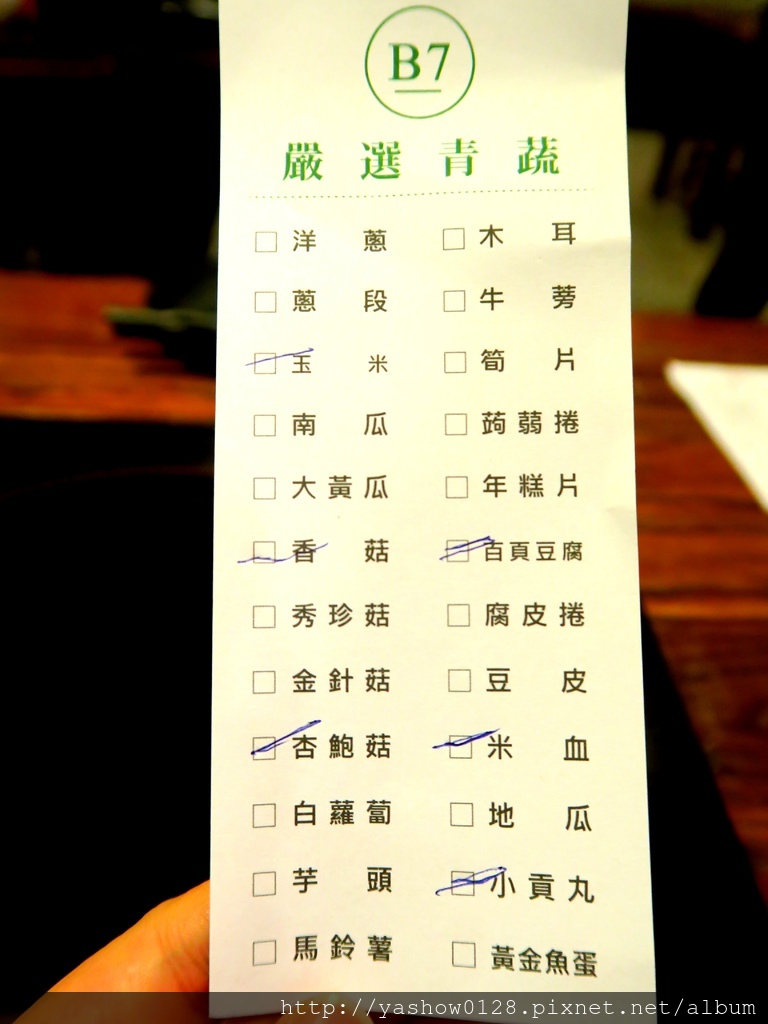 B7
嚴選青蔬
洋蔥 木耳
蔥段 牛蒡
玉米 筍片
南瓜 蒟蒻捲
大黃瓜 年糕片
香菇 百頁豆腐
秀珍菇 腐皮捲
金針菇 豆皮
杏鮑菇 米血
白蘿蔔 地瓜
芋頭 小貢丸
馬鈴薯 黃金魚蛋
http://yashow0128.pixnet.net/album